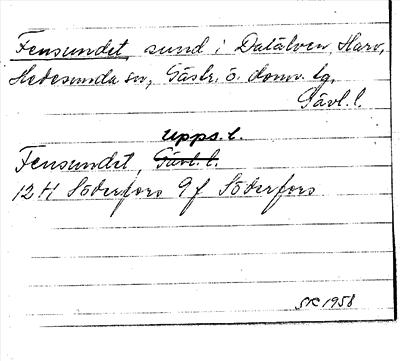 Fensundet, sund i Dalälven, Harv,
Hedesunda sn, Gästr. ö. domv. lg,
Gävl. l.
Upps. l.
Fensundet, Gävl. l.
12 H Söderfors 9 f Söderfors
SK 1958